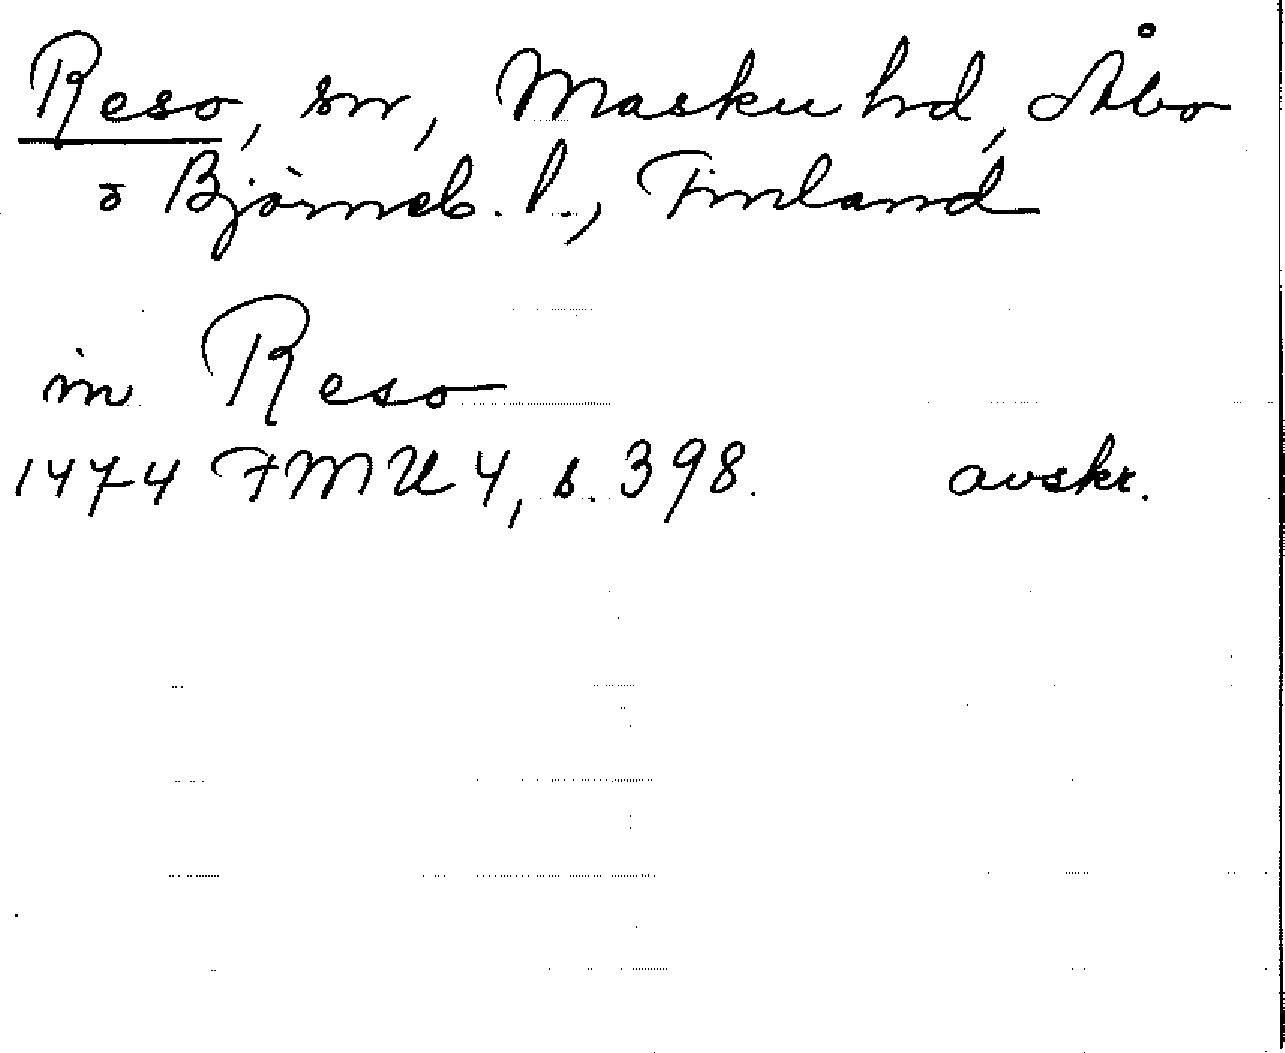 Reso, sn, Masku hd, Åbo
o Björneb. l., Finland
in Reso
1474 FMU 4, s. 398. avskr.